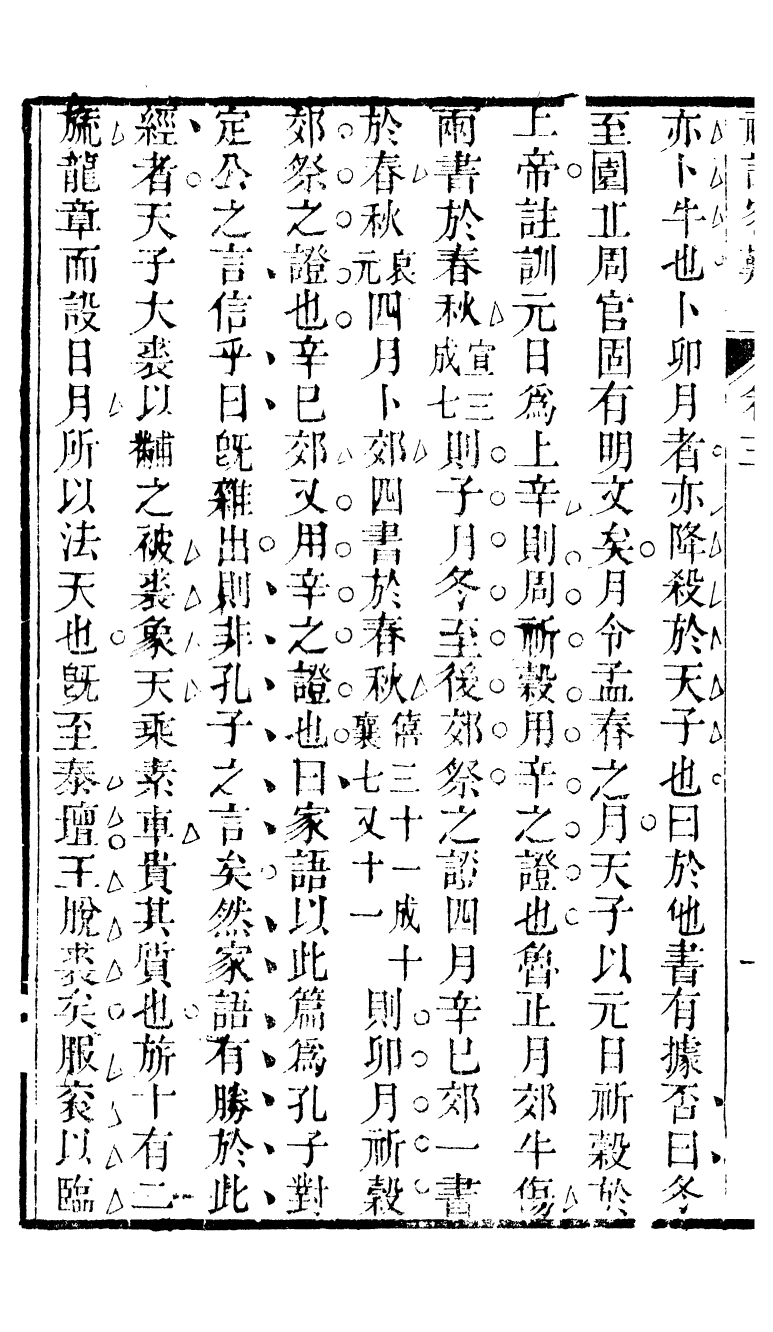 亦卜牛也卜卯月者亦降殺於天子也曰於他書有據否曰冬
至圜丘周官固有明文矣月令孟春之月天子以元日祈穀於
上帝註訓元日爲上辛則周祈穀用辛之證也魯正月郊牛傷
兩書於春秋宣三成七則子月冬至後郊祭之證四月辛巳郊一書
於春秋哀元四月卜郊四書於春秋僖三十一成十襄七又十一則卯月祈穀
郊祭之證也辛巳郊又用辛之證也曰家語以此篇爲孔子對
定公之言信乎曰旣雜出則非孔子之言矣然家語有勝於此
經者天子大裘以黼之被裘象天乘素車貴其質也旂十有二
旒龍章而設日月所以法天也旣至泰壇王脫裘矣服袞以臨